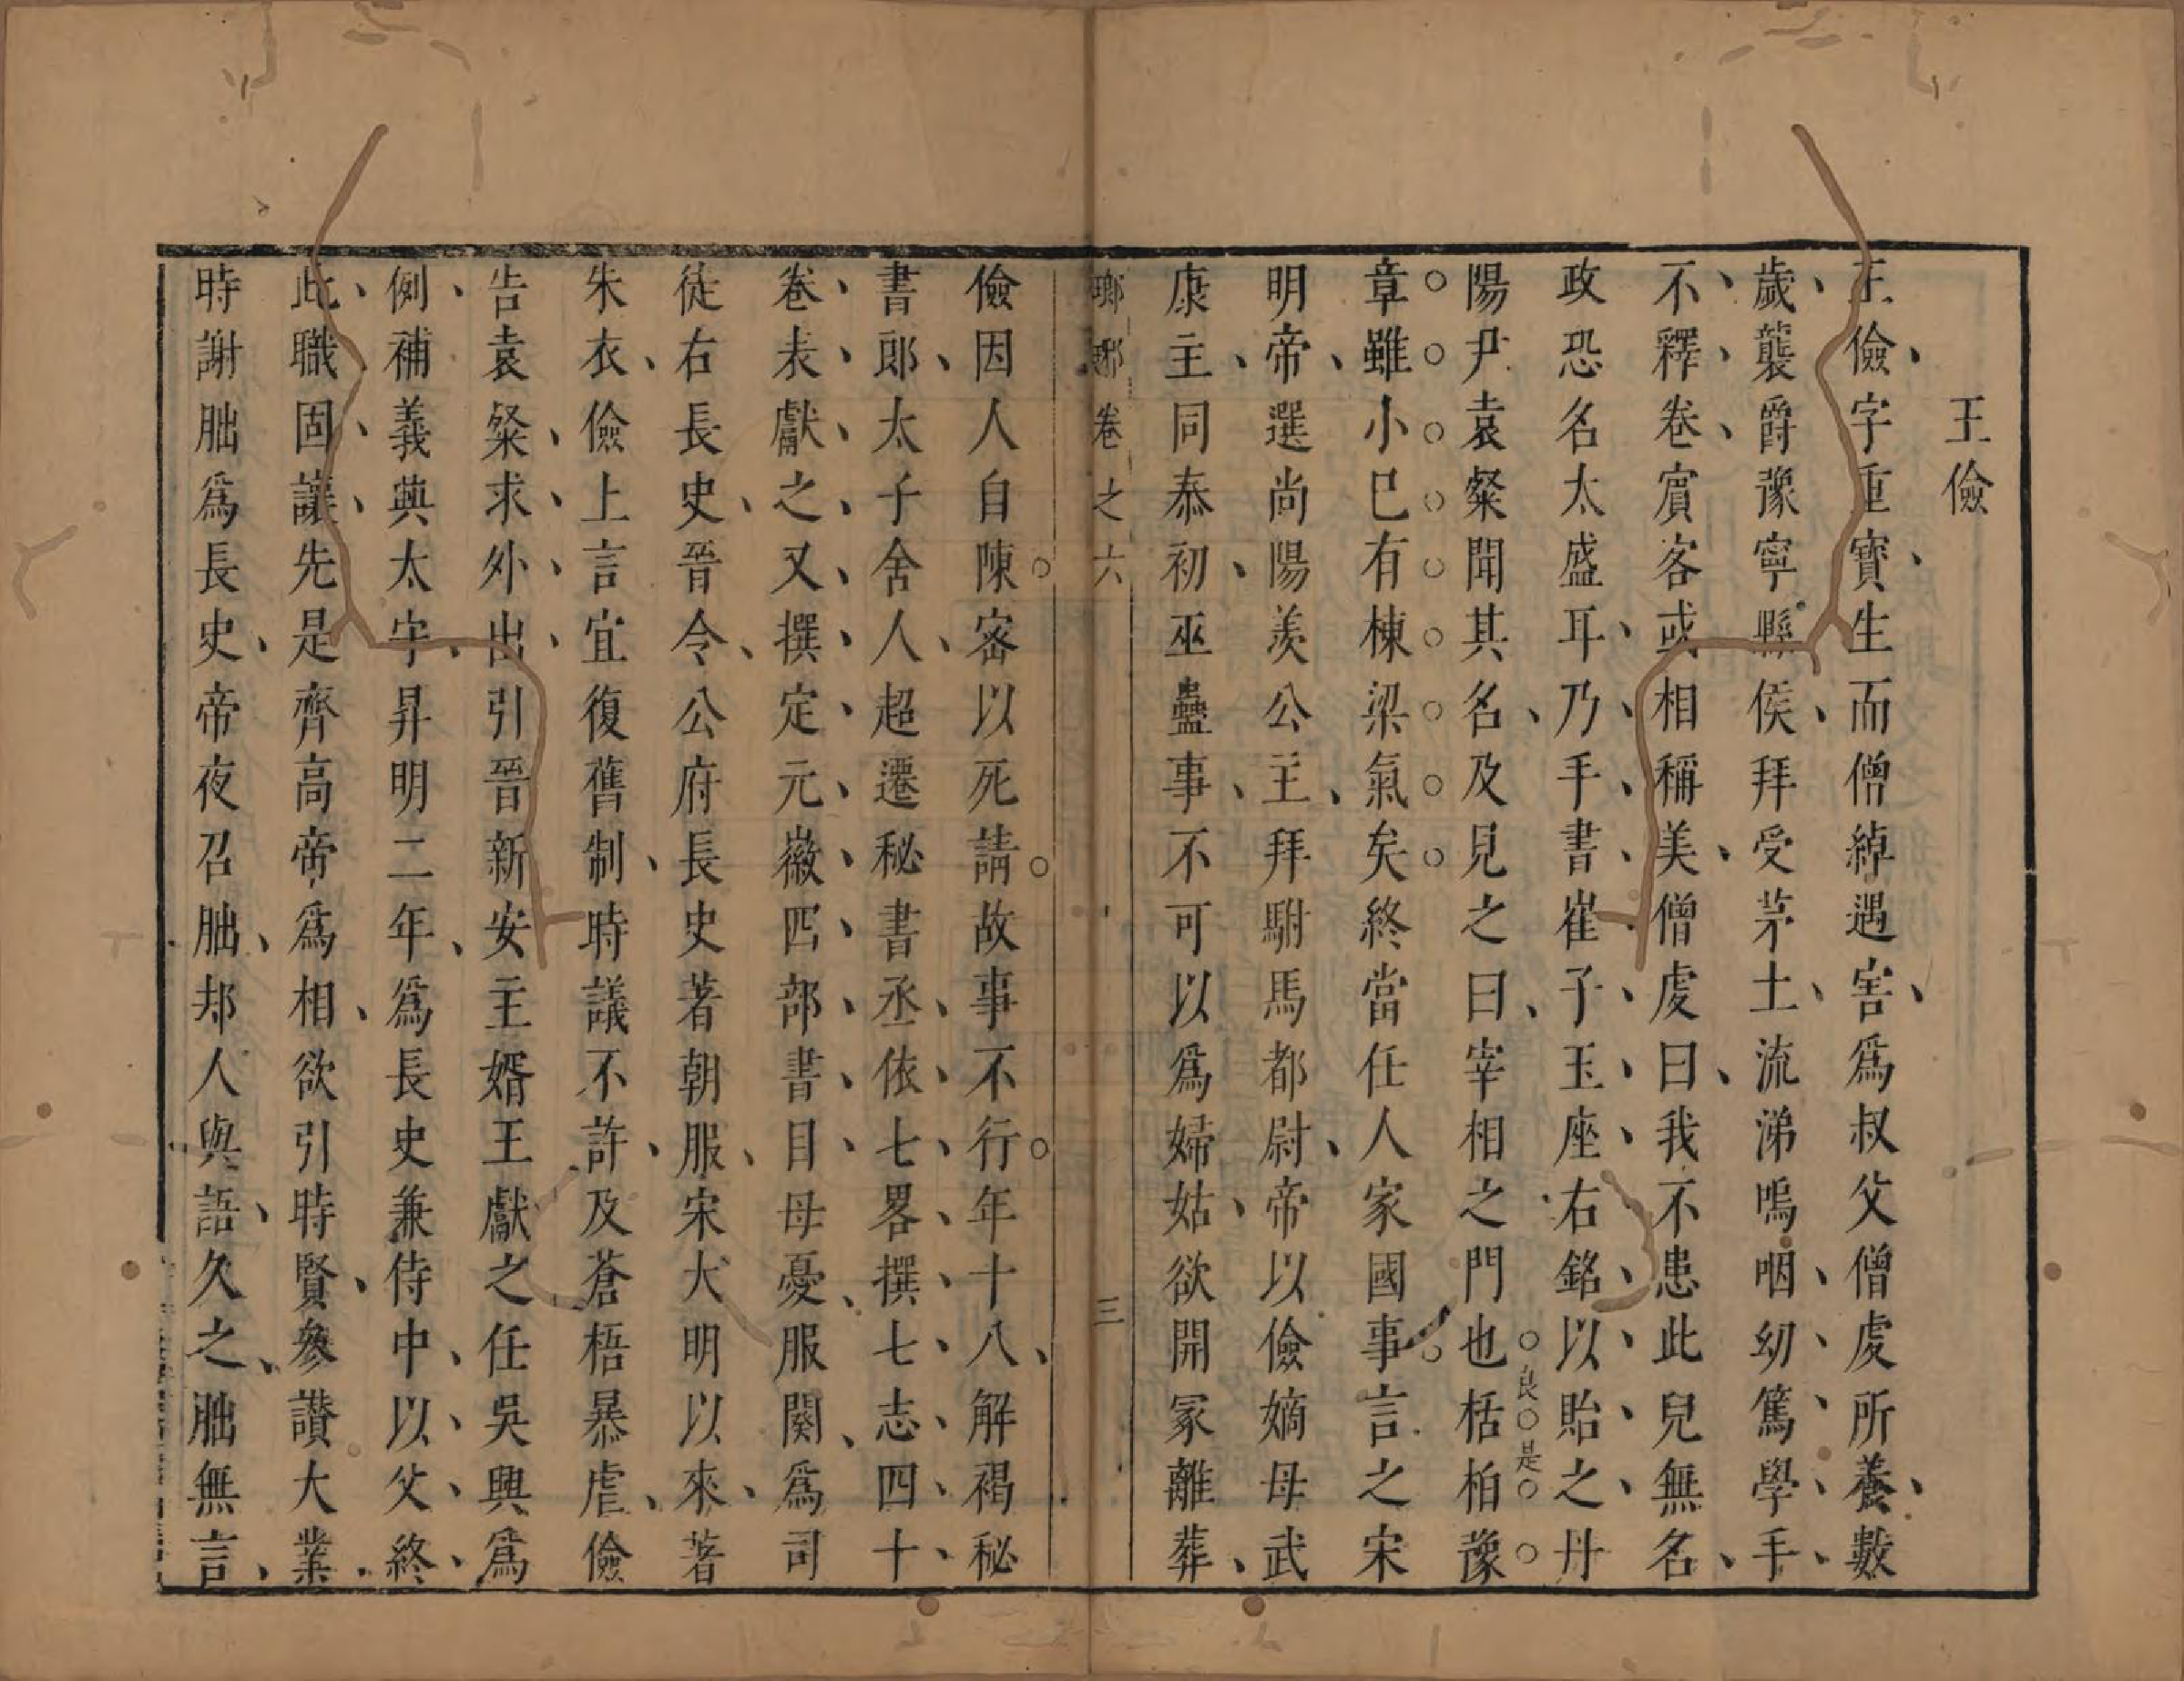 王儉
王儉字重寶生而僧綽遇害爲叔父僧虔所養數
歲襲爵豫寧縣侯拜受茅土流涕嗚咽幼篤學手
不釋卷賓客或相稱美僧虔曰我不患此兒無名
政恐名太盛耳乃手書崔子玉座右銘以貽之丹
陽尹袁粲聞其名及見之曰宰相之門也栝柏豫
良是
章雖小巳有棟梁氣矣終當任人家國事言之宋
明帝選尚陽羨公主拜駙馬都尉帝以儉嫡母武
康主同泰初巫蠱事不可以爲婦姑欲開冢離葬
瑯琊 卷之六 三
儉因人自陳密以死請故事不行年十八解褐秘
書郎太子舍人超遷秘書丞依七畧撰七志四十
卷表獻之又撰定元徽四部書目母憂服闋爲司
徒右長史晉令公府長史著朝服宋大明以來著
朱衣儉上言宜復舊制時議不許及蒼梧暴虐儉
告袁粲求外出引晉新安主婿王獻之任吳興爲
例補義興太守昇明二年爲長史兼侍中以父終
此職固讓先是齊高帝爲相欲引時賢參讚大業
時謝朏爲長史帝夜召朏却人與語久之朏無言